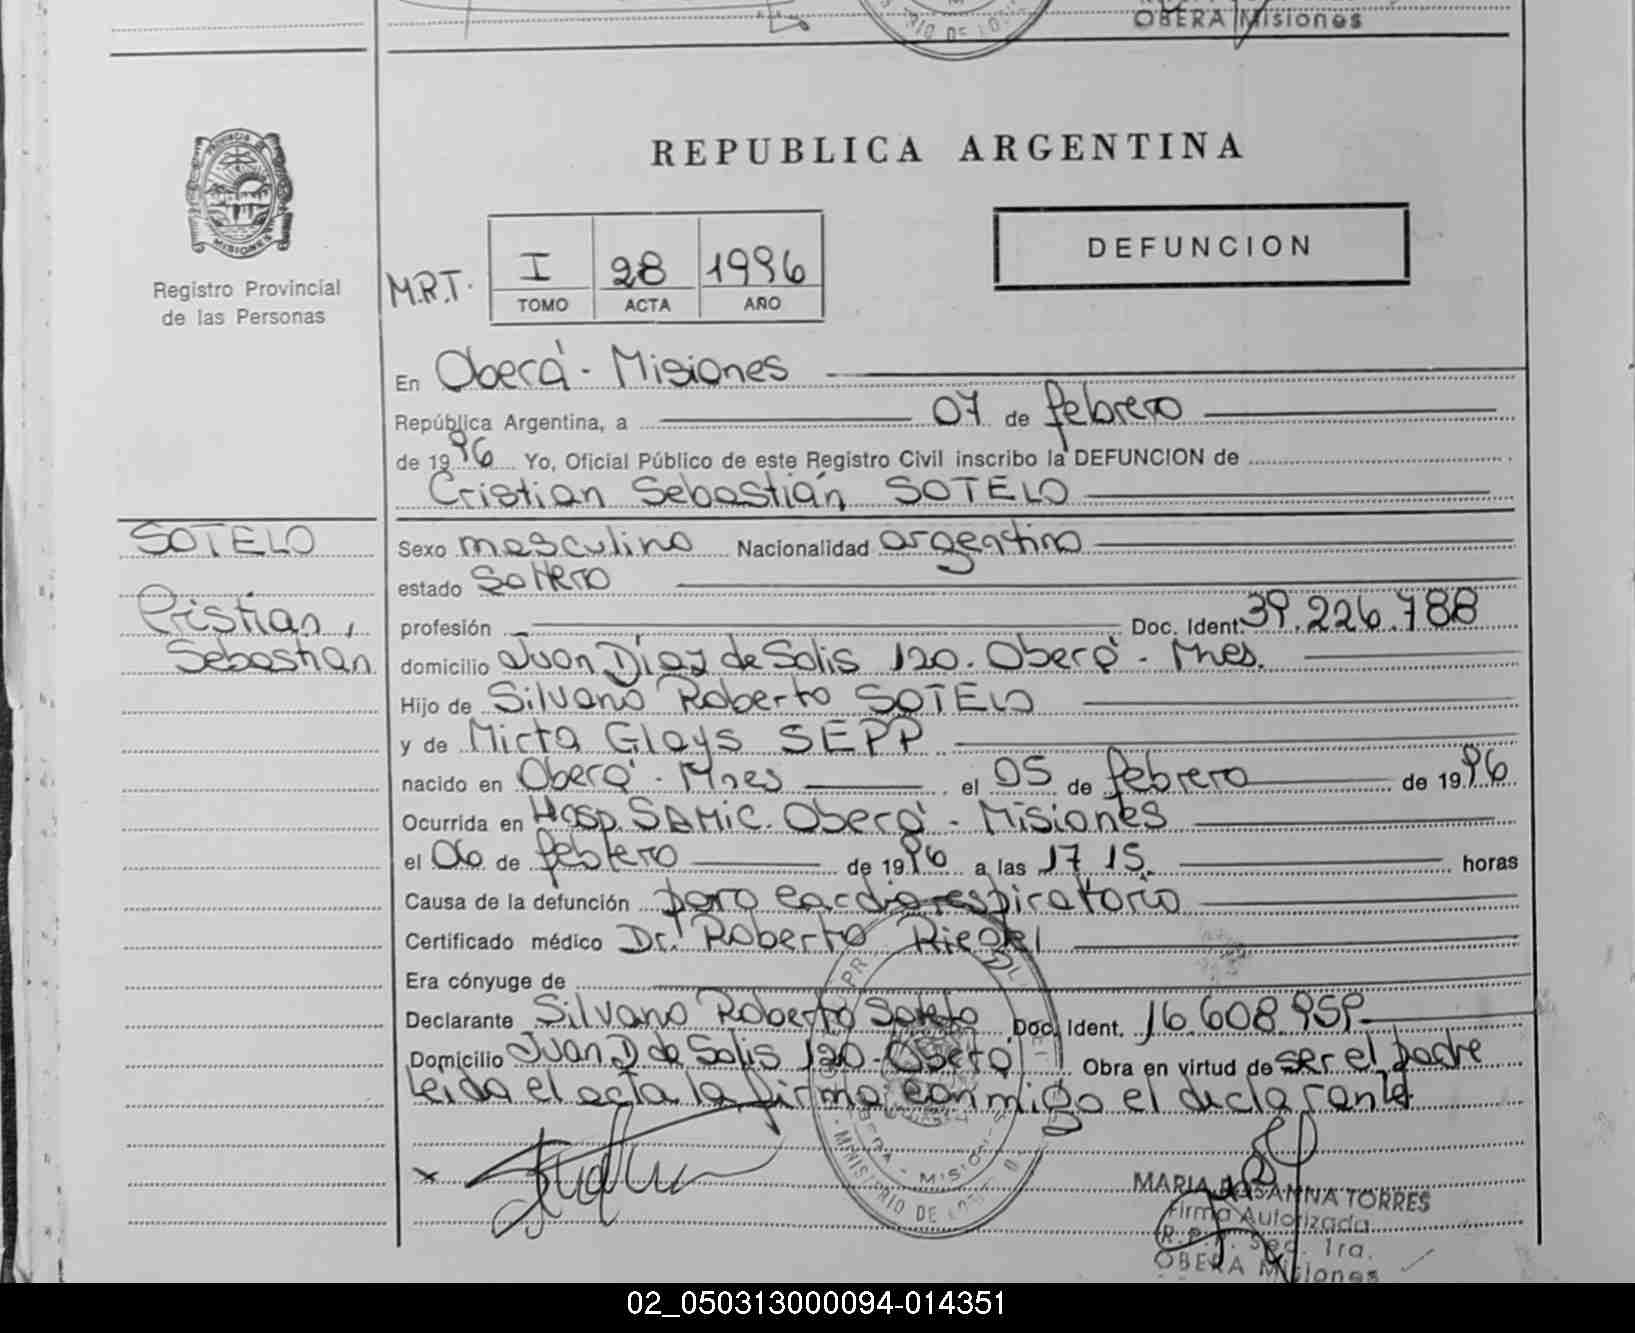 OBERA Misiones
REPUBLICA ARGENTINA
PROVINCIA DE
MISIONES
Registro Provincial
de las Personas
DEFUNCION
M.R.T.
I 28 1996
TOMO ACTA AÑO
En Oberá - Misiones
República Argentina, a 07 de febrero
de 1996 Yo, Oficial Público de este Registro Civil inscribo la DEFUNCION de
Cristian Sebastián SOTELO
SOTELO
Cristian,
Sebastián
Sexo masculino Nacionalidad argentino
estado Soltero
profesión Doc. Ident. 39.226.788
domicilio Juan Díaz de Solis 120. Oberá - Mnes.
Hijo de Silvano Roberto SOTELO
y de Mirta Glays SEPP
nacido en Oberá - Mnes el 05 de febrero de 1996
Ocurrida en Hosp. SAMIC. Oberá - Misiones
el 06 de febrero de 1996 a las 17 15 horas
Causa de la defunción paro cardiorespiratorio
Certificado médico Dr. Roberto Riegel
Era cónyuge de
Declarante Silvano Roberto Sotelo Doc. Ident. 16.608.959
Domicilio Juan D de Solis 120 - Oberá Obra en virtud de ser el padre
Leida el acta la firma conmigo el declarante
MINISTERIO DE
MARIA ROSANNA TORRES
Firma Autorizada
R.P.P. Sec. 1ra.
OBERA Misiones
02_050313000094-014351